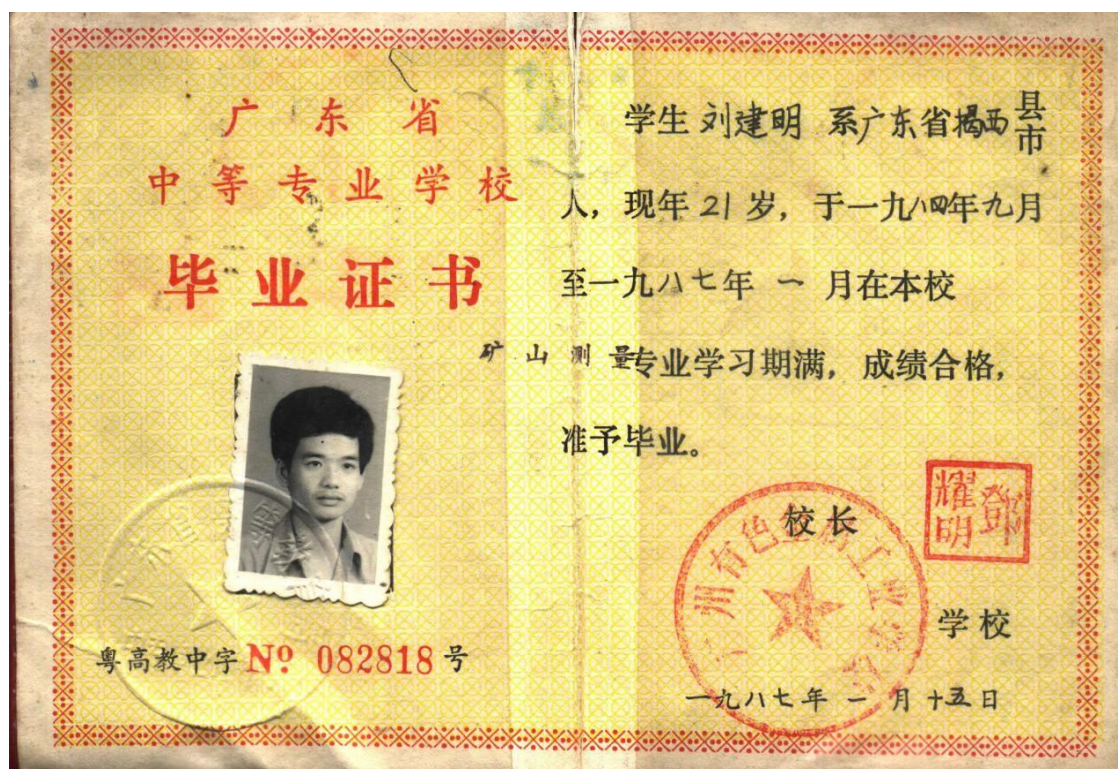 广东省
中等专业学校
毕业证书
粤高教中字 Nº 082818 号
学生 刘建明 系广东省揭西县市
人，现年 21 岁，于一九八四年九月
至一九八七年 一 月在本校
矿山测量专业学习期满，成绩合格，
准予毕业。
校长
邓耀明
广州有色金属工业学校
学校
一九八七年 一 月 十五日